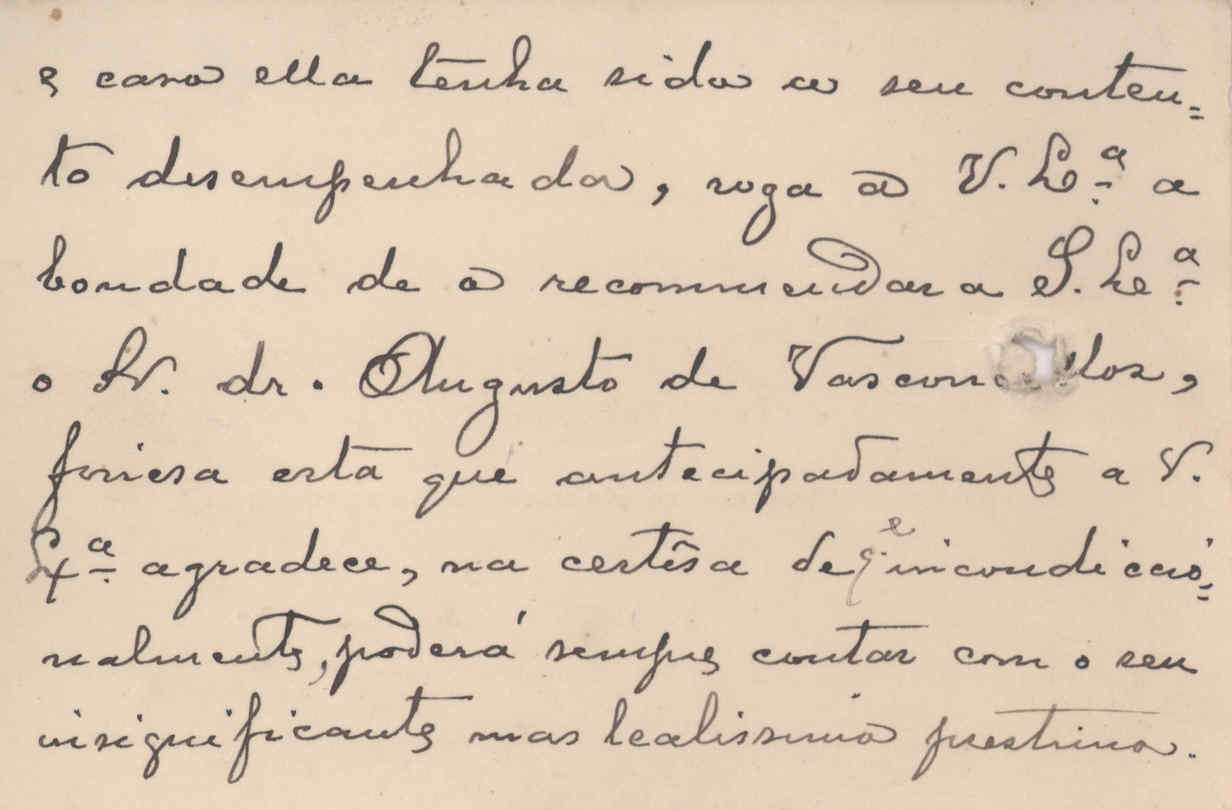 e caso ella tenha sido a seu conten=
to desempenhada, roga a V. Ex.ª a
bondade de o recommendar a S. Ex.ª
o Sr. dr. Augusto de Vasconcellos,
finesa esta que antecipadamente a V.
Ex.ª agradece, na certêsa de q.e incondiccio=
nalmente, poderá sempre contar com o seu
insignificante mas lealissimo prestimo.